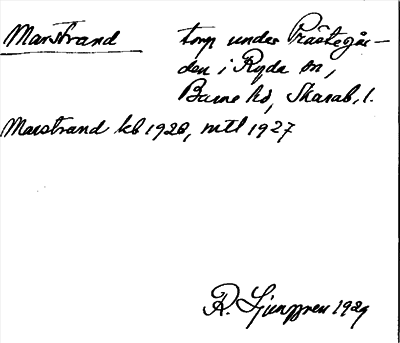 Marstrand torp under Prästegår-
den i Ryda sn,
Barne hd, Skarab. l.
Marstrand kb 1928, mtl 1927
R. Ljunggren 1929